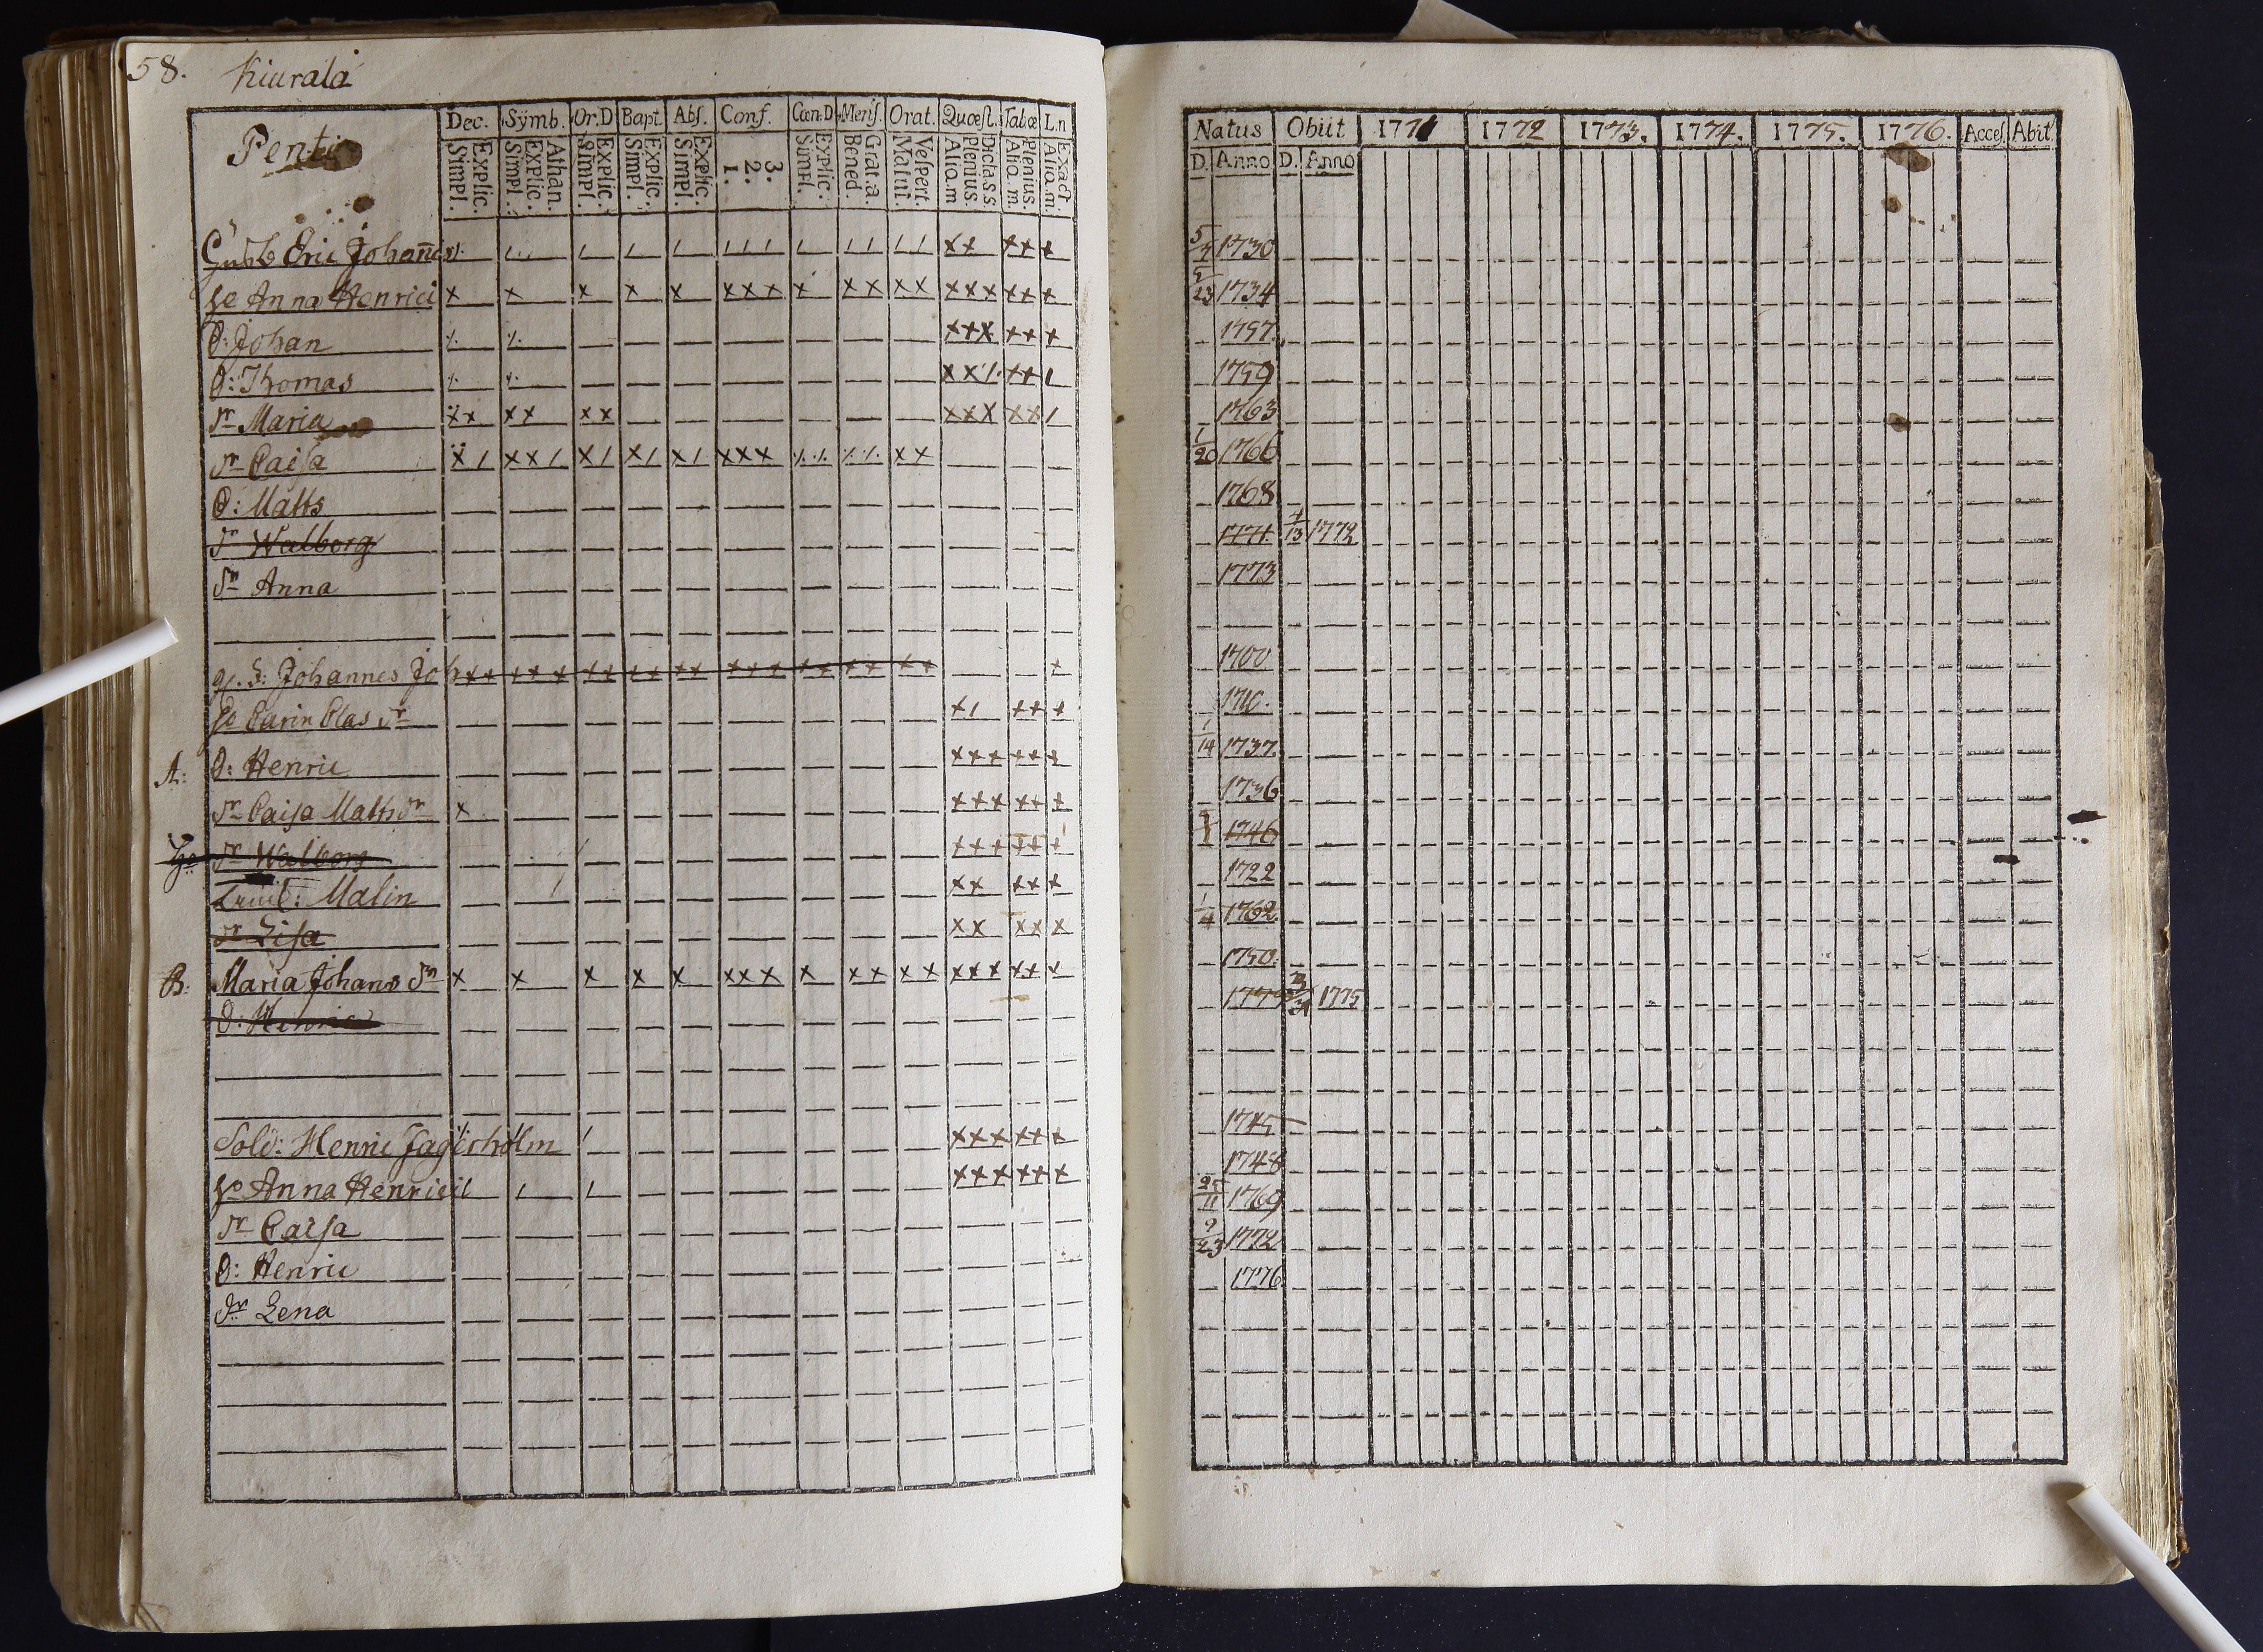 58. Kiurala
Pentti
Dec. Symb. Or.D Bapt. Abs. Conf. Cœn.D Mens. Orat. Quæst. Tabœ L.n
Simpl. Explic. Simpl. Explic. Athan. Simpl. Explic. Simpl. Explic. Simpl. Explic. 1. 2. 3. Simpl. Explic. Bened. Grat.a. Matut. Vespert. Aliq.m Plenius. Dicta.s.s. Aliq.m. Plenius. Aliq.m. Exact.
Eric Johannis
He Anna Henrici
D: Johan
D: Thomas
Dr Maria
Dr Caisa
D: Matts
Dr Walborg
Dr Anna
Johannes Joh
Ho Carin Clas Dr
A: D: Henric
Dr Caisa Matts Dr
Dr Walborg
Malin
Dr Lisa
B: Maria Johans Dr
D: Henric
Sold: Henric Jagerholm
Ho Anna Henrici
Dr Caisa
D: Henric
Dr Lena
Natus Obiit 1771 1772 1773. 1774. 1775. 1776. Acces. Abit
D. Anno D. Anno
5/4 1730
5/23 1734
1757.
1759
1763
1/20 1766
1768
1771. 4/13 1772
1773
1700
1710.
1/14 1737.
1736
1746
1722
1/4 1762.
1750.
1775
1745
1748
25/11 1769
9/23 1772
1776